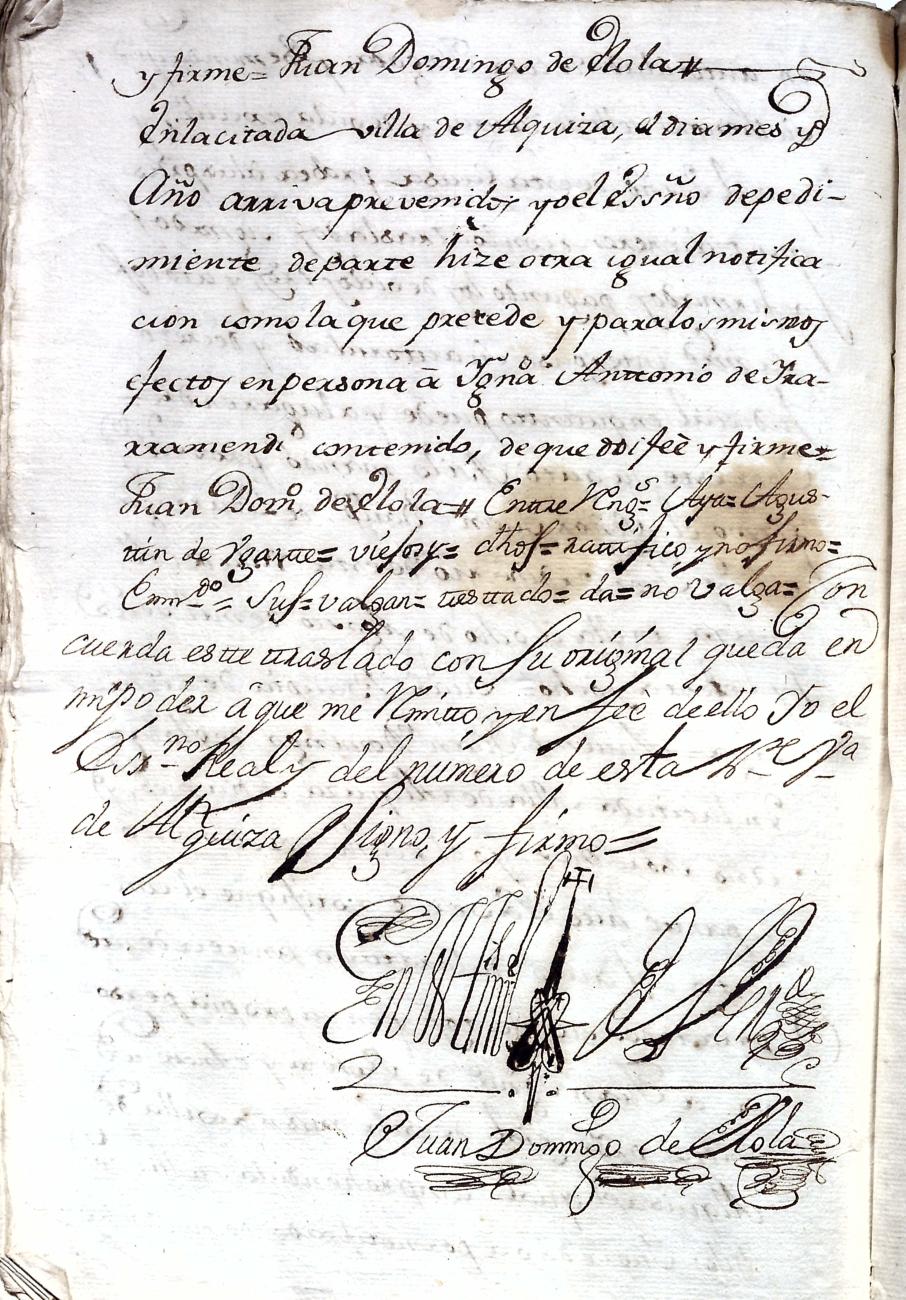 y firme= Juan Domingo de Elola#
Enlacitada villa de Alquiza, el dia mes y
Año arriva prevenidos yo el Essño depedi-
miento departe hize otra igual notifica
cion como la que precede y paralos mismos
efectos enpersona â Ygnō Anttonio de Yra-
rramendi contenido, de que doi feè y firme=
Juan Domō. de Elola# Entre Rengs= Agus-
ttin de Ygartte= dhos= rattifico, y no firmo=
Enmdo= Sus= valgan= testtado= da= no valga= Con
cuerda este ttraslado con Su original queda en
mi poder â que me Rimito, y en feè de ello Yo el
Essno Real y del numero de esta Nre Va
de Alquiza Signo, y firmo=
Juan Domingo de Elola